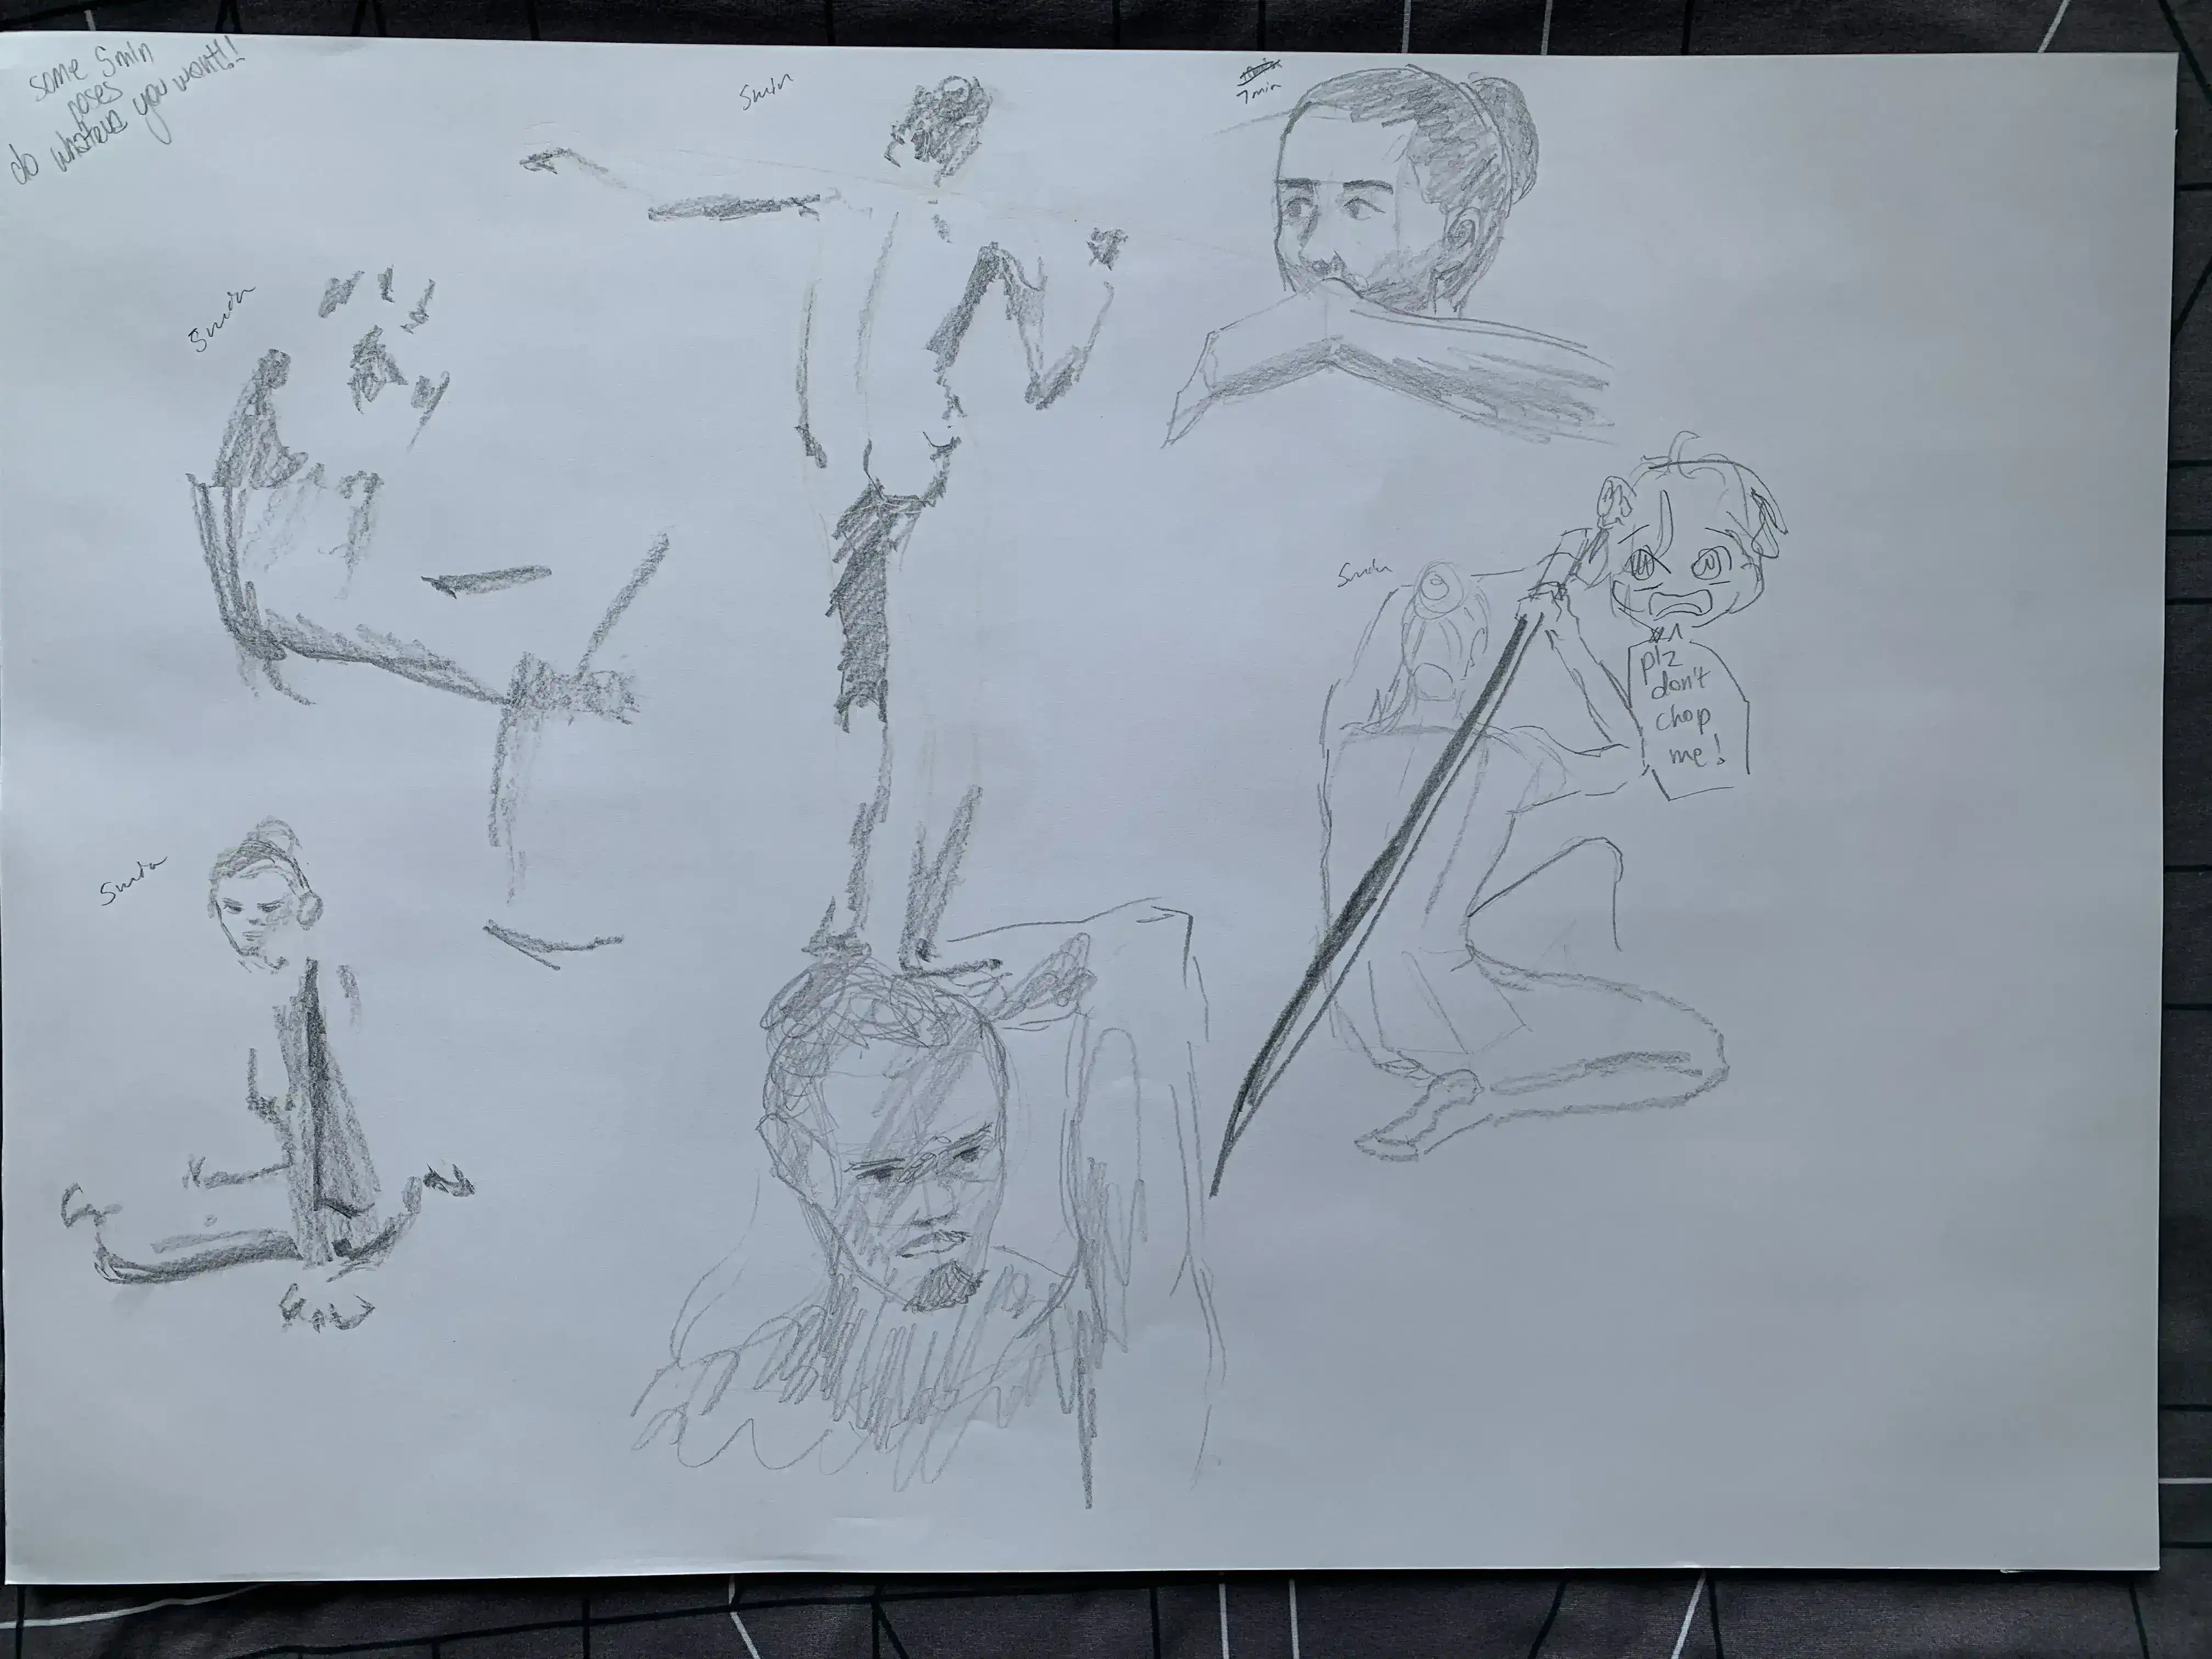 some 5min
poses
do whatever you want!!
5min
7min
5min
5min
plz
don't
chop
me!
5min